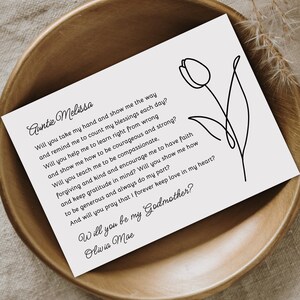 Auntie Melissa
Will you take my hand and show me the way
and remind me to count my blessings each day?
Will you help me to learn right from wrong
and show me how to be courageous and strong?
Will you teach me to be compassionate,
forgiving and kind and encourage me to have faith
and keep gratitude in mind? Will you show me how
to be generous and always do my part?
And will you pray that I forever keep love in my heart?
Will you be my Godmother?
Olivia Mae